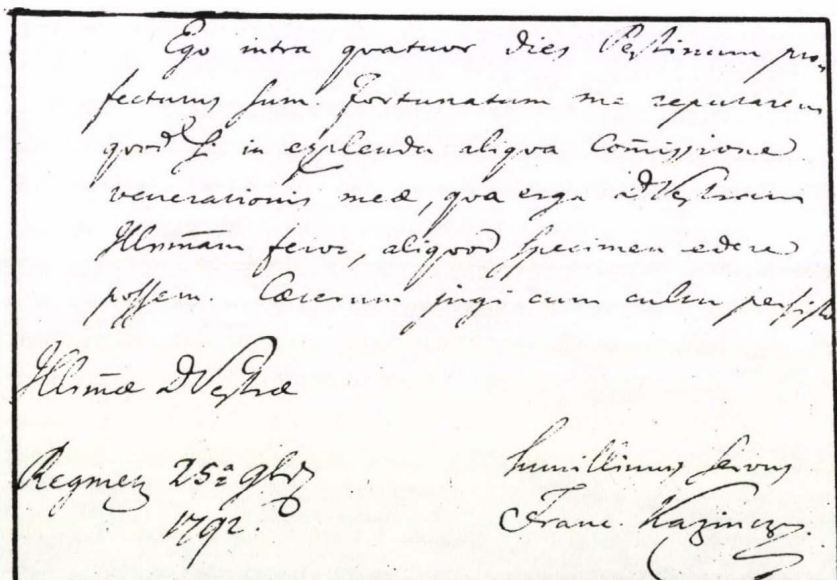 Ego intra quatuor dies Pestinum pro-
fecturus sum. Fortunatum me reputarem
quod si in explenda aliqva Com̄issione
venerationis meæ, qva erga DVestram
Illsmām feror, aliqvod specimen edere
possem. Cæterum jugi cum cultu persisto
Illsmæ DVestræ
Regmecz 25a 9br
1792.
humillimus servus
Franc. Kazinczy.